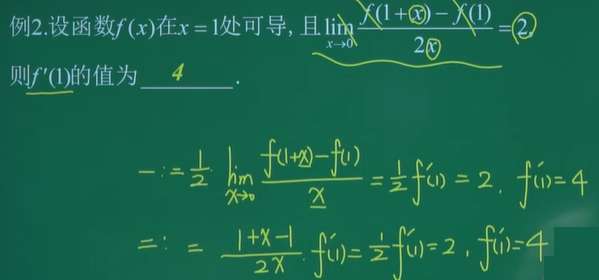 例2.设函数f(x)在x=1处可导,且lim x→0 f(1+x)-f(1) / 2x =2.
则f′(1)的值为 4 .
一:= 1/2 lim x→0 f(1+x)-f(1) / x = 1/2 f′(1) = 2. f′(1)=4
二: = 1+x-1 / 2x · f′(1) = 1/2 f′(1) = 2, f′(1)=4